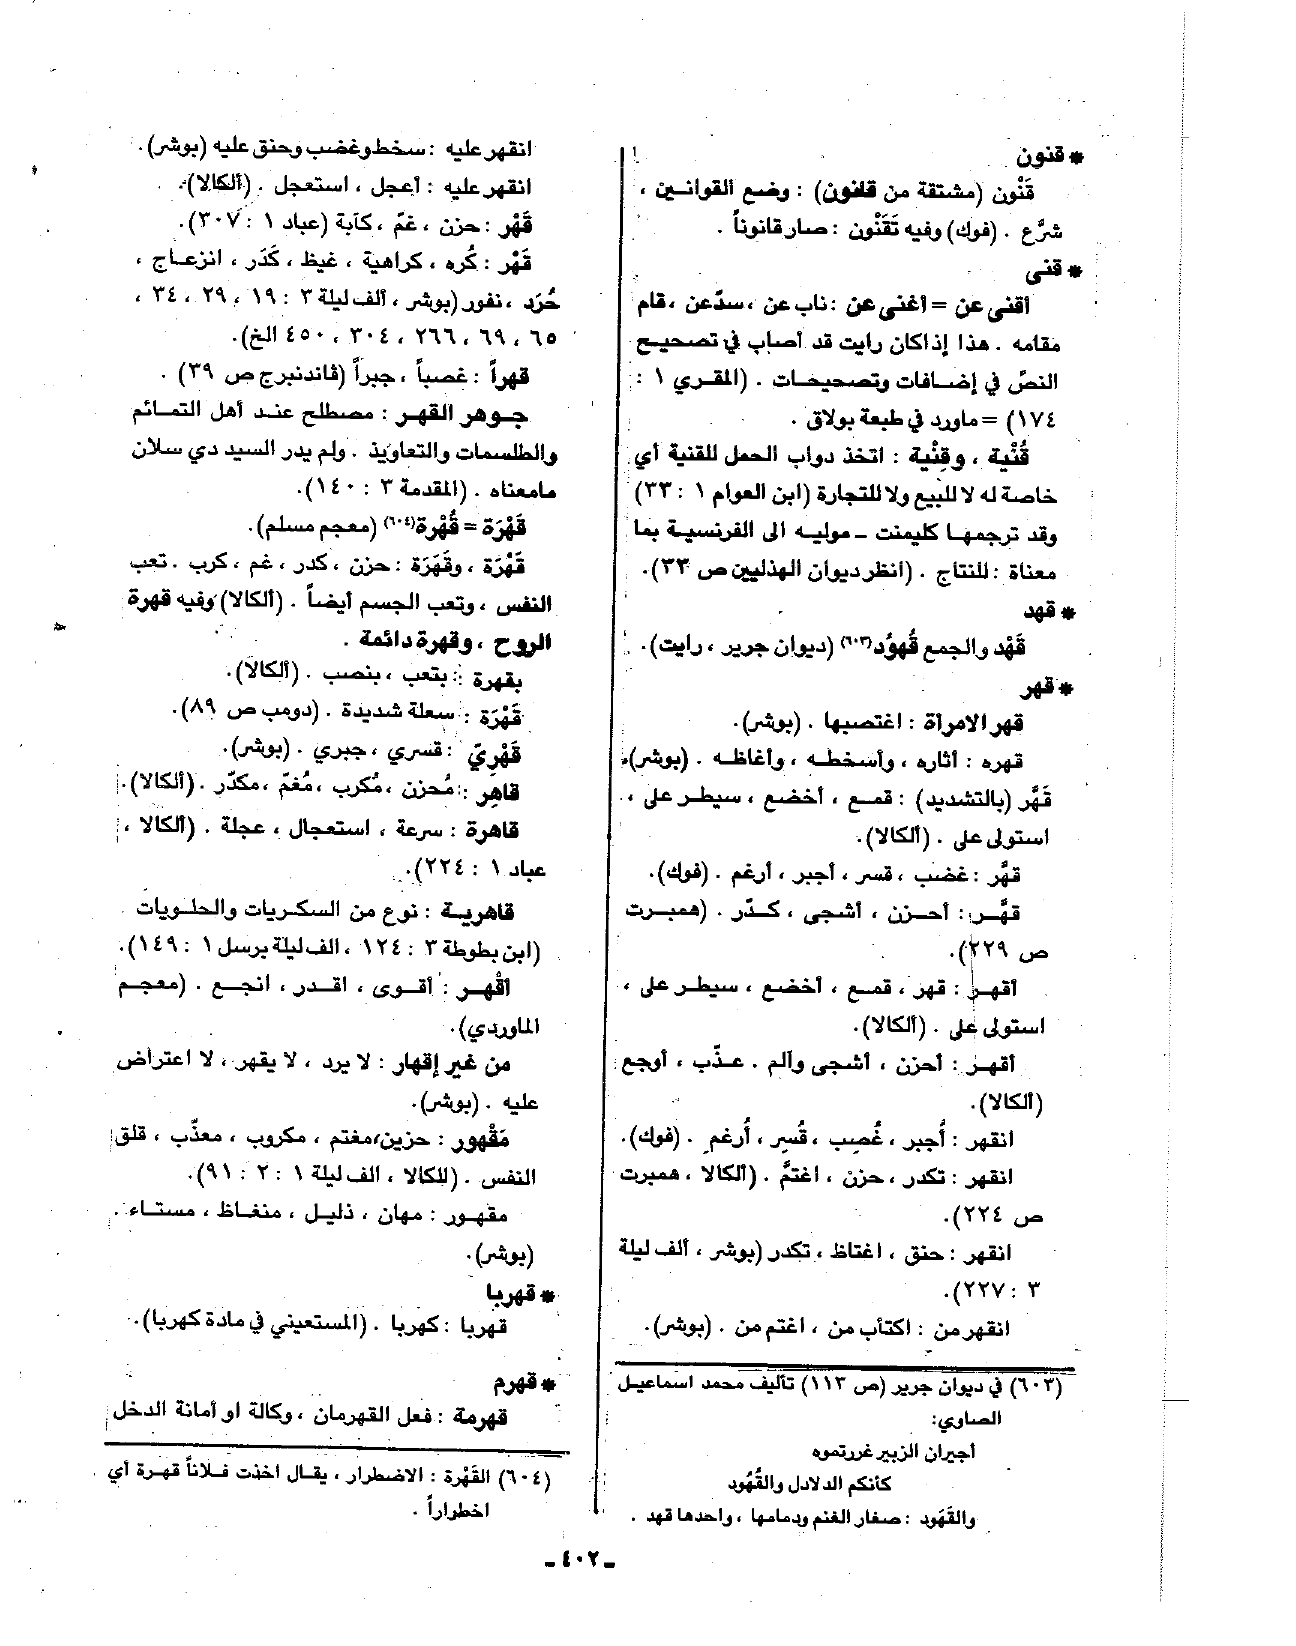 * قنون
قَنْون (مشتقة من قانون) : وضع القوانين ،
شرَّع . (فوك) وفيه تَقَنْون : صار قانوناً .
* قنى
أقنى عن = أغنى عن : ناب عن ، سدّ عن ، قام
مقامه . هذا إذا كان رايت قد أصاب في تصحيح
النصّ في إضافات وتصحيحات . (المقري ١ :
١٧٤) = ماورد في طبعة بولاق .
قُنْية ، وقِنْية : اتخذ دواب الحمل للقنية أي
خاصة له لا للبيع ولا للتجارة (ابن العوام ١ : ٣٣)
وقد ترجمها كليمنت ـ موليه الى الفرنسية بما
معناة : للنتاج . (انظر ديوان الهذليين ص ٣٣).
* قهد
قَهْد والجمع قُهوُد(٦٠٣) (ديوان جرير ، رايت).
* قهر
قهر الامرأة : اغتصبها . (بوشر).
قهره : أثاره ، وأسخطه ، وأغاظه . (بوشر).
قَهَّر (بالتشديد) : قمع ، أخضع ، سيطر على ،
استولى على . (ألكالا).
قهَّر : غضب ، قسر ، أجبر ، أرغم . (فوك).
قهَّر : أحزن ، أشجى ، كدّر . (همبرت
ص ٢٢٩).
أقهر : قهر ، قمع ، أخضع ، سيطر على ،
استولى على . (ألكالا).
أقهر : أحزن ، أشجى وآلم . عذّب ، أوجع
(ألكالا).
انقهر : أُجبر ، غُصِب ، قُسِر ، أُرغم . (فوك).
انقهر : تكدر ، حزن ، اغتمَّ . (ألكالا ، همبرت
ص ٢٢٤).
انقهر : حنق ، اغتاظ ، تكدر (بوشر ، ألف ليلة
٣ : ٢٢٧).
انقهر من : اكتأب من ، اغتم من . (بوشر).
(٦٠٣) في ديوان جرير (ص ١١٣) تأليف محمد اسماعيل
الصاوي:
أجيران الزبير غررتموه
كأنكم الدلادل والقُهُود
والقَهُود : صغار الغنم ودمامها ، واحدها قهد .
انقهر عليه : سخط وغضب وحنق عليه (بوشر).
انقهر عليه : أعجل ، استعجل . (ألكالا).
قَهْر : حزن ، غمّ ، كآبة (عباد ١ : ٣٠٧).
قَهْر : كُره ، كراهية ، غيظ ، كَدَر ، انزعاج ،
حُرَد ، نفور (بوشر ، ألف ليلة ٣ : ١٩ ، ٢٩ ، ٣٤ ،
٦٥ ، ٦٩ ، ٢٦٦ ، ٣٠٤ ، ٤٥٠ الخ).
قهراً : غصباً ، جبراً (فاندنبرج ص ٣٩) .
جوهر القهر : مصطلح عند أهل التمائم
والطلسمات والتعاويذ . ولم يدر السيد دي سلان
مامعناه . (المقدمة ٣ : ١٤٠).
قَهْرَة = قُهْرة(٦٠٤) (معجم مسلم).
قَهْرَة ، وقَهَرَة : حزن ، كدر ، غم ، كرب . تعب
النفس ، وتعب الجسم أيضاً . (ألكالا) وفيه قهرة
الروح ، وقهرة دائمة .
بقهرة : بتعب ، بنصب . (ألكالا).
قَهْرَة : سعلة شديدة . (دومب ص ٨٩).
قَهْريّ : قسري ، جبري . (بوشر).
قاهَِر : مُحزن ، مُكرب ، مُغمّ ، مكدّر . (ألكالا).
قاهرة : سرعة ، استعجال ، عجلة . (ألكالا ،
عباد ١ : ٢٢٤).
قاهرية : نوع من السكريات والحلويات
(ابن بطوطة ٣ : ١٢٤ ، الف ليلة برسل ١ : ١٤٩).
أقْهر : أقوى ، اقدر ، انجع . (معجم
الماوردي).
من غير إقهار : لا يرد ، لا يقهر ، لا اعتراض
عليه . (بوشر).
مَقْهور : حزين، مغتم ، مكروب ، معذّب ، قلق
النفس . (للكالا ، الف ليلة ١ : ٢ : ٩١).
مقهور : مهان ، ذليل ، منغاظ ، مستاء .
(بوشر).
* قهربا
قهربا : كهربا . (المستعيني في مادة كهربا).
* قهرم
قهرمة : فعل القهرمان ، وكالة او أمانة الدخل
(٦٠٤) القَهْرة : الاضطرار ، يقال اخذت فلاناً قهرة أي
اخطراراً .
ـ ٤٠٢ ـ